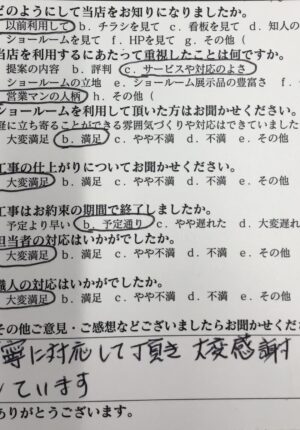 どのようにして当店をお知りになりましたか。
以前利用して b. チラシを見て c. 看板を見て d. 知人の
ショールームを見て f. HPを見て g. その他 (
当店を利用するにあたって重視したことは何ですか。
提案の内容 b. 評判 c. サービスや対応のよさ
ショールームの立地 e. ショールーム展示品の豊富さ f.
営業マンの人柄 h. その他 (
ショールームを利用して頂いた方はお聞かせください。
軽に立ち寄ることができる雰囲気づくりや対応はできていました
大変満足 b. 満足 c. やや不満 d. 不満 e. その他
工事の仕上がりについてお聞かせください。
大変満足 b. 満足 c. やや不満 d. 不満 e. その他
工事はお約束の期間で終了しましたか。
予定より早い b. 予定通り c. やや遅れた d. 大変遅れ
担当者の対応はいかがでしたか。
大変満足 b. 満足 c. やや不満 d. 不満 e. その他
職人の対応はいかがでしたか。
大変満足 b. 満足 c. やや不満 d. 不満 e. その他
その他ご意見・ご感想などございましたらお聞かせくだ
寧に対応して頂き 大変感謝
ています
ありがとうございます。